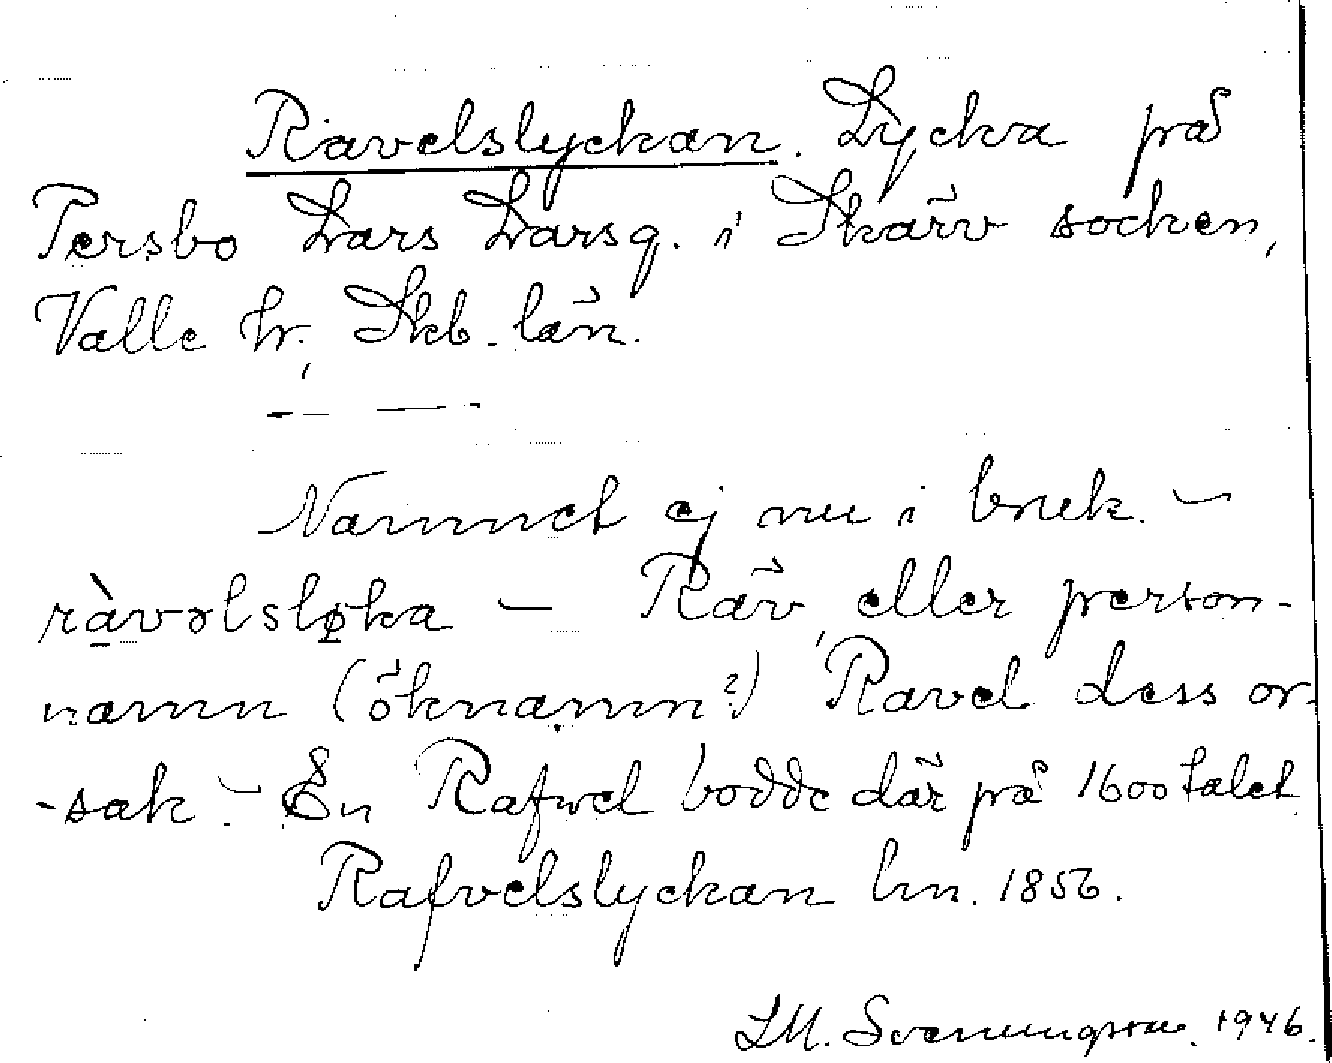 Ravelslyckan. Lycka på
Persbo Lars Larsg. i Skärv socken,
Valle hr, Skb. län.
Namnet ej nu i bruk. –
ràvəlsløka – Räv, eller person-
namn (öknamn?) Ravel dess or-
-sak. – En Rafwel bodde där på 1600 talet
Rafvelslyckan hn. 1856.
LM. Svenungsson. 1946.